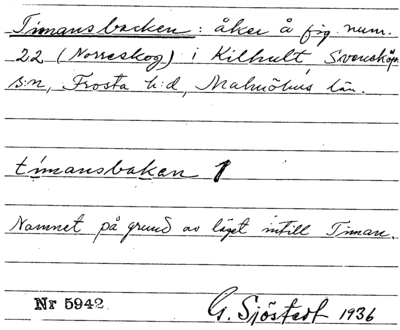 Timansbacken: åker å fig. num.
22 (Norreskog) i Kilhult, Svensköp
s:n, Frosta h:d, Malmöhus län.
timansbakan 1
Namnet på grund av läget intill Timan.
Nr 5942 G. Sjöstedt 1936